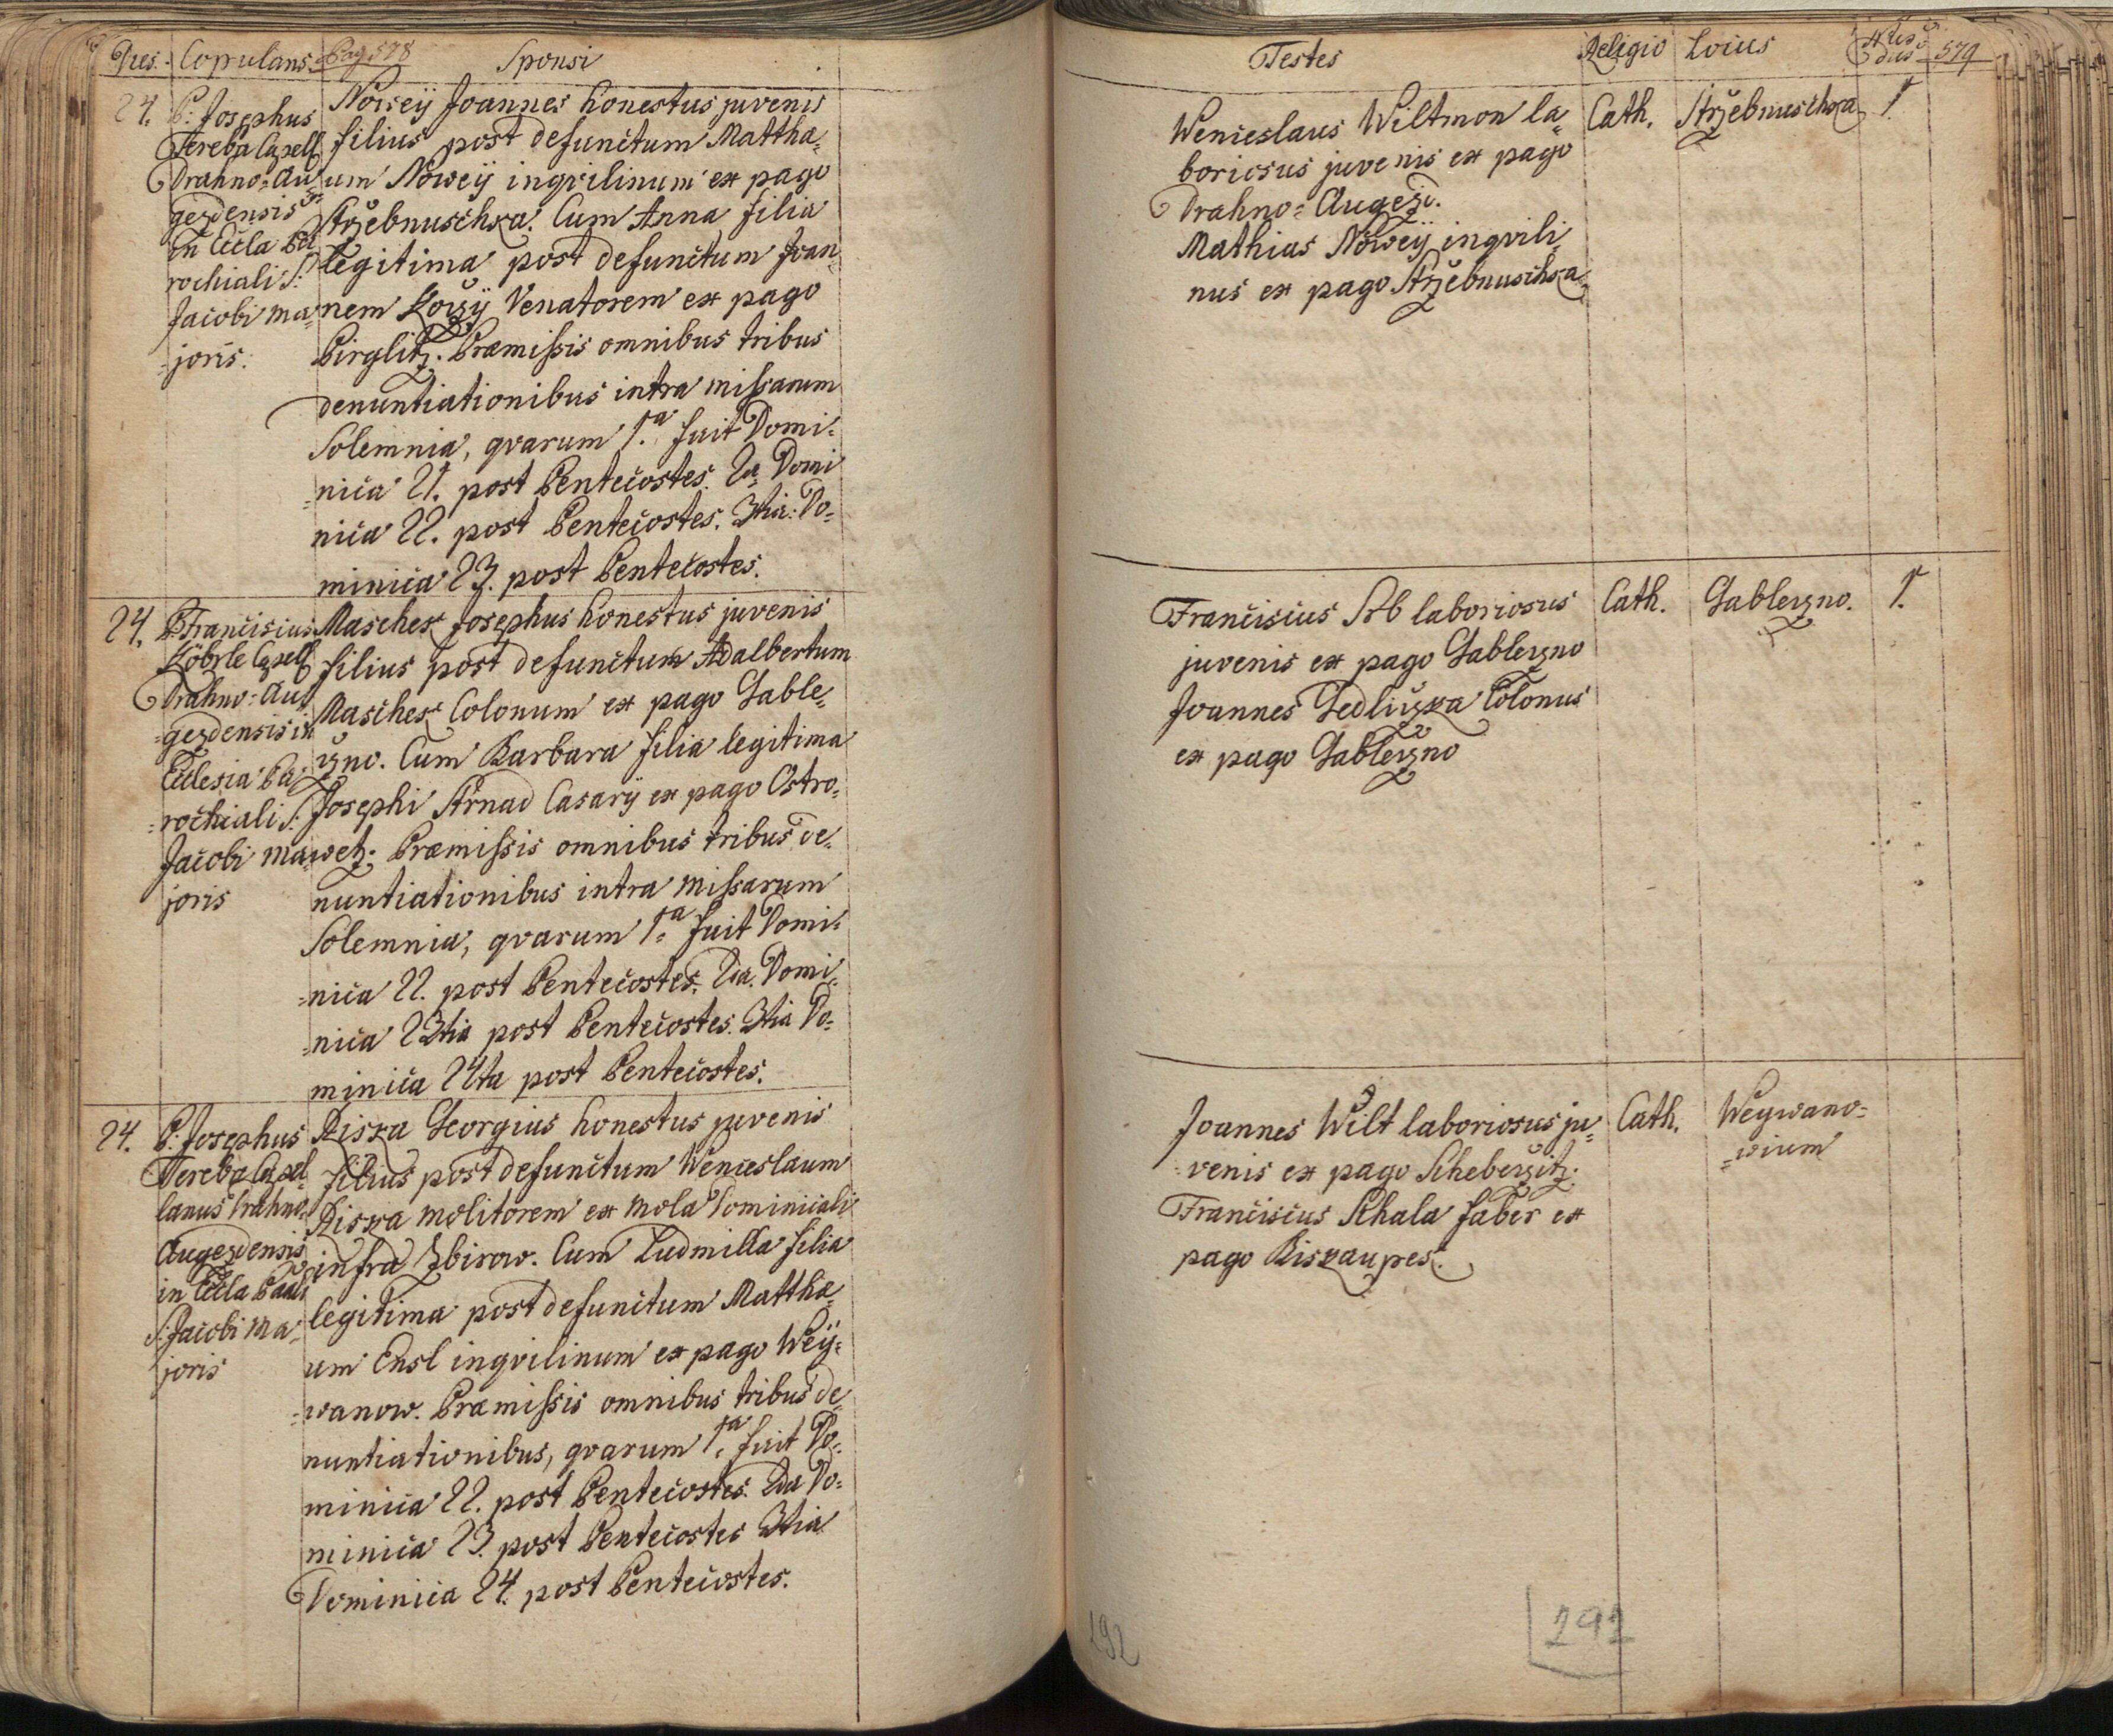 Dies. Copulans. Pag. 578 Sponsi
24. P. Josephus
Tereba Capell
Drahno-Au=
gezdensis
in Eccla Pa
rochiali S.
Jacobi ma=
=joris.
Noweÿ Joannes honestus juvenis
filius post defunctum Mattha=
um Noweÿ inqvilinum ex pago
Strzebnuschka. Cum Anna filia
legitima post defunctum Joan
nem Venatorem ex pago
Pirglitz. Præmissis omnibus tribus
denuntiationibus intra missarum
Solemnia, qvarum 1.a fuit Domi=
=nica 21. post Pentecostes. 2a Domi
nica 22. post Pentecostes. 3tia. Do=
minica 23. post Pentecostes.
24. P. Franciscus
Köbrle Capell
Drahno=Au
=gezdensis in
Ecclesia Pa
=rochiali S:
Jacobi ma
joris
Maschek Josephus honestus juvenis
filius post defunctum Adalbertum
Maschek Colonum ex pago Gable=
czno. Cum Barbara filia legitima
Josephi Strnad Casarÿ ex pago Ostro=
wetz. Præmissis omnibus tribus de=
nuntiationibus intra missarum
Solemnia, qvarum 1.a fuit Domi=
=nica 22. post Pentecostes. 2da. Domi=
=nica 23tia post Pentecostes. 3tia Do=
minica 24ta post Pentecostes.
24. P. Josephus
Tereba Capel=
lanus Drahno
Augezdensis
in Eccla Paali
S. Jacobi Ma=
joris
Riska Georgius honestus juvenis
filius post defunctum Wenceslaum
Riska molitorem ex mola Dominicali
infra Zbirow. Cum Ludmilla filia
legitima post defunctum Matthæ=
um Ensl inqvilinum ex pago Weÿ=
=wanow. Præmissis omnibus tribus de=
nuntiationibus, qvarum 1.a fuit Do=
minica 22. post Pentecostes. 2da Do=
minica 23. post Pentecostes 3tia
Dominica 24. post Pentecostes.
Testes Religio Locus 579
Wenceslaus Wiltmon la= Cath. Strzebnuschka 1.
boriosus juvenis ex pago
Drahno=Augezd.
Mathias Noweÿ inqvili
nus ex pago Strzebnuschka
Franciscus Srb laboriosus Cath. Gableczno. 1.
juvenis ex pago Gableczno
Joannes Gedliczka Colonus
ex pago Gableczno
Joannes Wilt laboriosus ju= Cath. Weywano=
venis ex pago Scheberzitz. =wium
Franciscus Skala faber ex
pago Biskaupek.
292
292